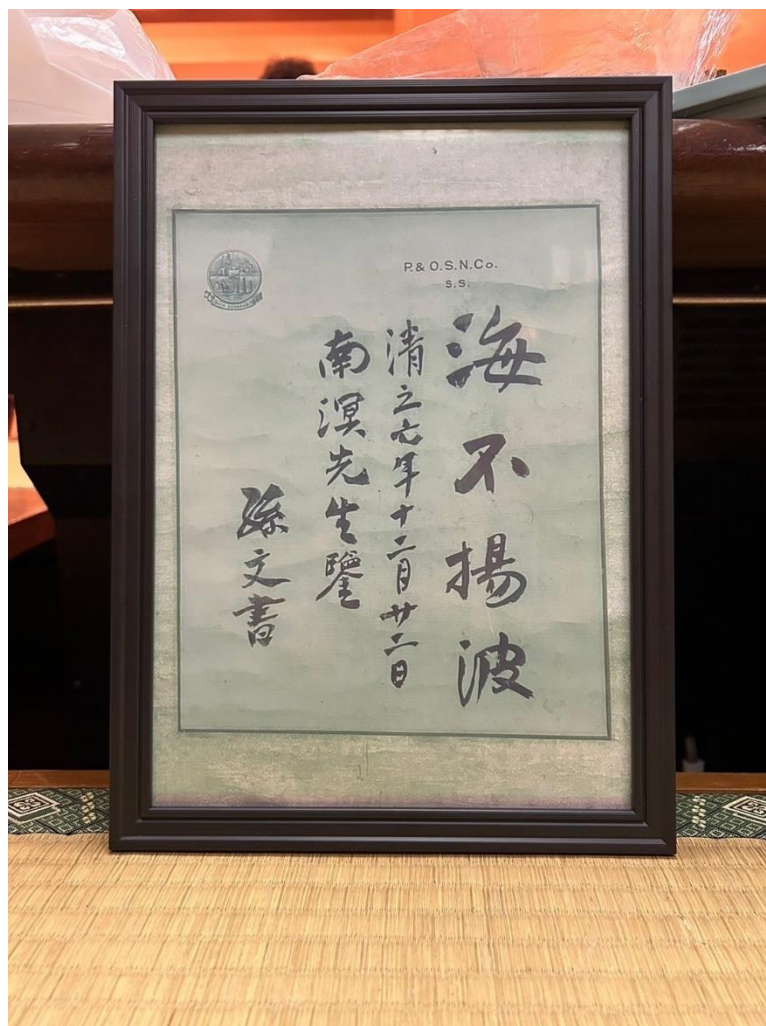 P. & O. S. N. Co.
S.S.
海不揚波
清之七年十二月廿二日
南溟先生鑒
孫文書